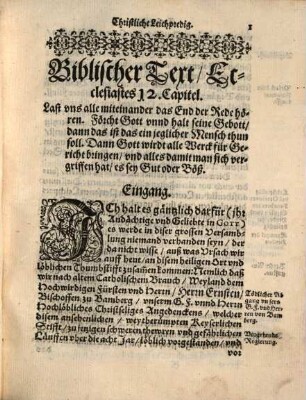 Christliche Leichpredig.
1
Biblischer Text / Ec-
clesiastes 12. Capitel.
Laßt vns alle miteinander das End der Rede hö-
ren. Förcht Gott vnnd halt seine Gebott /
dann das ist das ein jeglicher Mensch thun
soll. Dann Gott wirdt alle Werck für Ge-
richt bringen / vnd alles damit man sich ver-
griffen hat / es sey Gut oder Böß.
Eingang.
JCh halt es gäntzlich darfür (jhr
Andächtige vnd Geliebte in GOTT)
es werde in diser grossen Versamb-
lung niemand verhanden seyn / der
da nicht wisse / auß was Vrsach wir
auff heut / an disem heiligen Ort vnd
löblichen Thumbstifft zusam̃en kom̃en: Nemlich daß
wir nach altem Catholischem Brauch / Weyland dem
Hochwürdigen Fürsten vnd Herrn / Herrn Ernsten /
Bischoffen zu Bamberg / vnserm G. F. vnnd Herrn
Hochlöbliches Christseliges Angedenckens / welcher
disem ansehenlichen / weytherümpten Keyserlichen
Stifft / zu jenigen schweren thewren vnd gefährlichen
Läufften vber die acht Jar / löblich vorgestanden / vnd
vor
Tödlicher Ab-
gang vnsers
G. F. vnd Her-
ren von Bam-
berg.
Regierung.